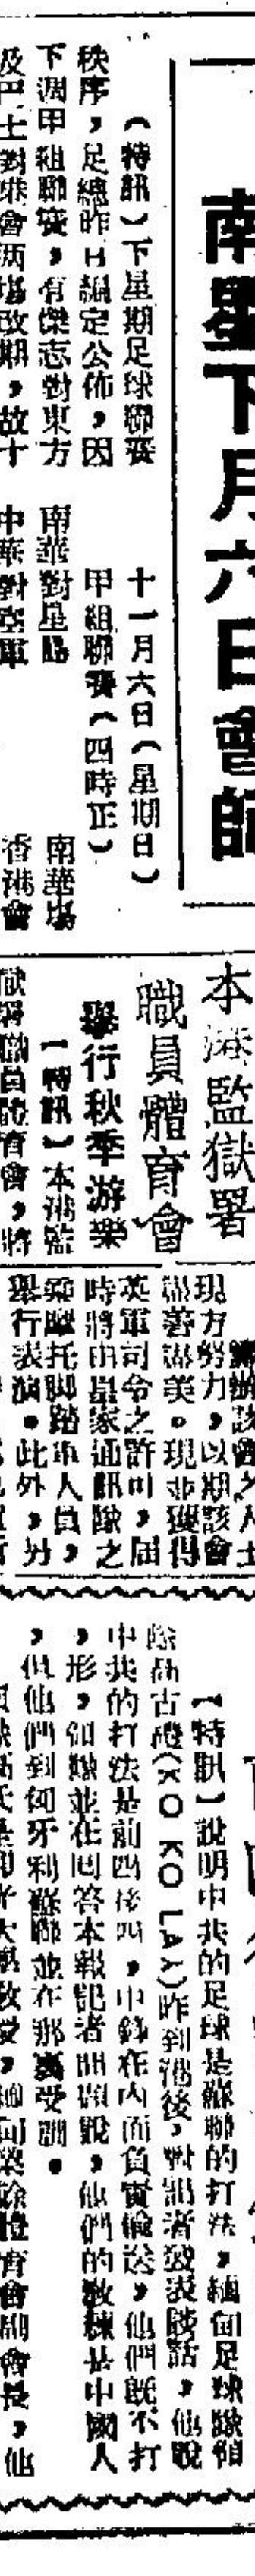 南星下月六日會師
（特訊）下星期足球聯賽
秩序，足總昨日編定公佈，因
下週甲組聯賽，有傑志對東方
及巴士對港會兩場改期，故十
十一月六日（星期日）
甲組聯賽（四時正）
南華對星島 南華場
中華對空軍 香港會
本港監獄署
職員體育會
舉行秋季游樂
【特訊】本港監
獄署職員體育會，將
籌辦該會之人士
現方努力，以期該會
盡善盡美。現並獲得
英軍司令之許可，屆
時將由皇家通訊隊之
摩托脚踏車人員，
舉行表演。此外，另
【特訊】說明中共的足球是蘇聯的打法，緬甸足球隊領
隊高古禮（KO KO LAY）昨到港後，對記者發表談話，他說
中共的打法是前四後四，中鋒在內面負責偷送，他們既不打
形，
並在回答本報記者問題說，他們的教練是中國人
，但他們到匈牙利蘇聯並在那裏受訓。
體育會副會長，他